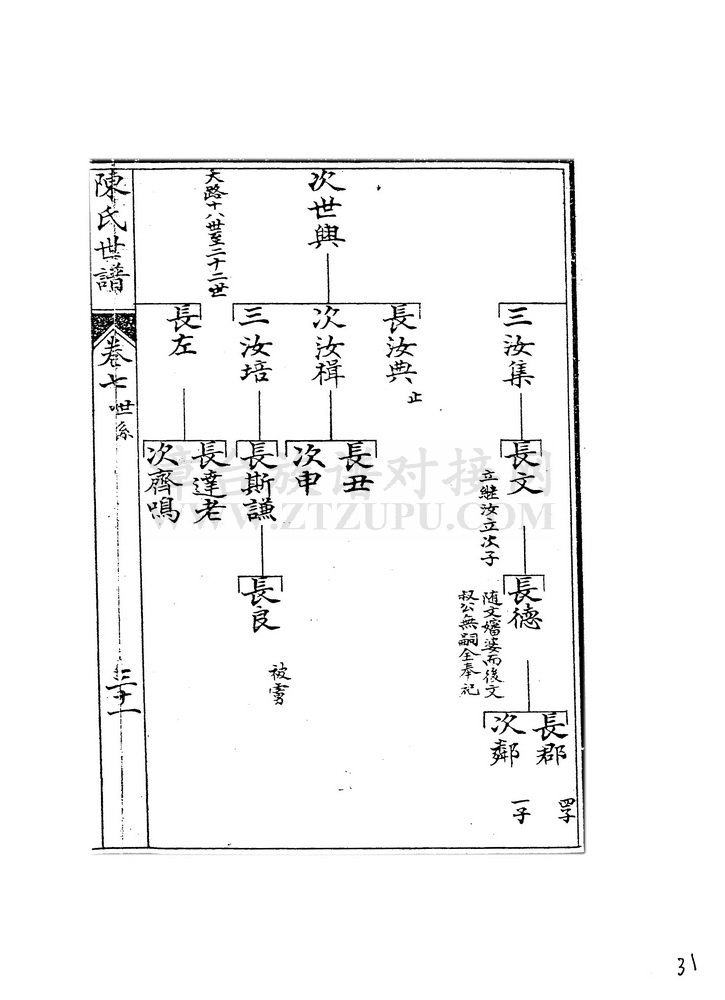 次世興
大路十八世至二十二世
三汝集
長汝典
止
次汝楫
三汝培
長左
長文
立繼汝立次子
長丑
次申
長斯謙
長達老
次齊鳴
長德
随文孀婆而後文
叔公無嗣全奉祀
長良
被雪
長郡
四子
次鄰
一子
陳氏世譜
卷七
世系
三十一
漳台族谱对接网
WWW.ZTZUPU.COM
31